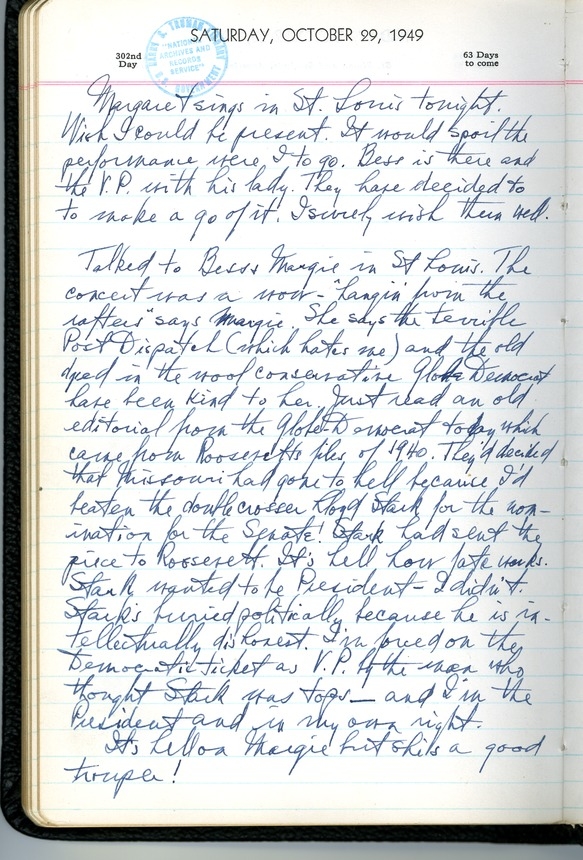 SATURDAY, OCTOBER 29, 1949
302nd
Day
63 Days
to come
HARRY S. TRUMAN LIBRARY
"NATIONAL
ARCHIVES AND
RECORDS
SERVICE"
Margaret sings in St. Louis tonight.
Wish I could be present. It would spoil the
performance were I to go. Bess is there and
the V.P. with his lady. They have decided to
to make a go of it. I surely wish them well.
Talked to Bess & Margie in St Louis. The
concert was a wow - "hangin' from the
rafters" says Margie. She says the terrible
Post Dispatch (which hates me) and the old
dyed in the wool conservative Globe Democrat
have been kind to her. Just read an old
editorial from the Globe-Democrat today which
came from Roosevelt's files of 1940. They'd decided
that Missouri had gone to hell because I'd
beaten the doublecrosser Lloyd Stark for the nom-
ination for the Senate! Stark had sent the
piece to Roosevelt. It's hell how fate works.
Stark wanted to be President - I didn't.
Stark's buried politically because he is in-
tellectually dishonest. I'm forced on the
Democratic ticket as V.P. by the man who
thought Stark was tops - and I'm the
President and in my own right.
It's hell on Margie but she's a good
trouper!